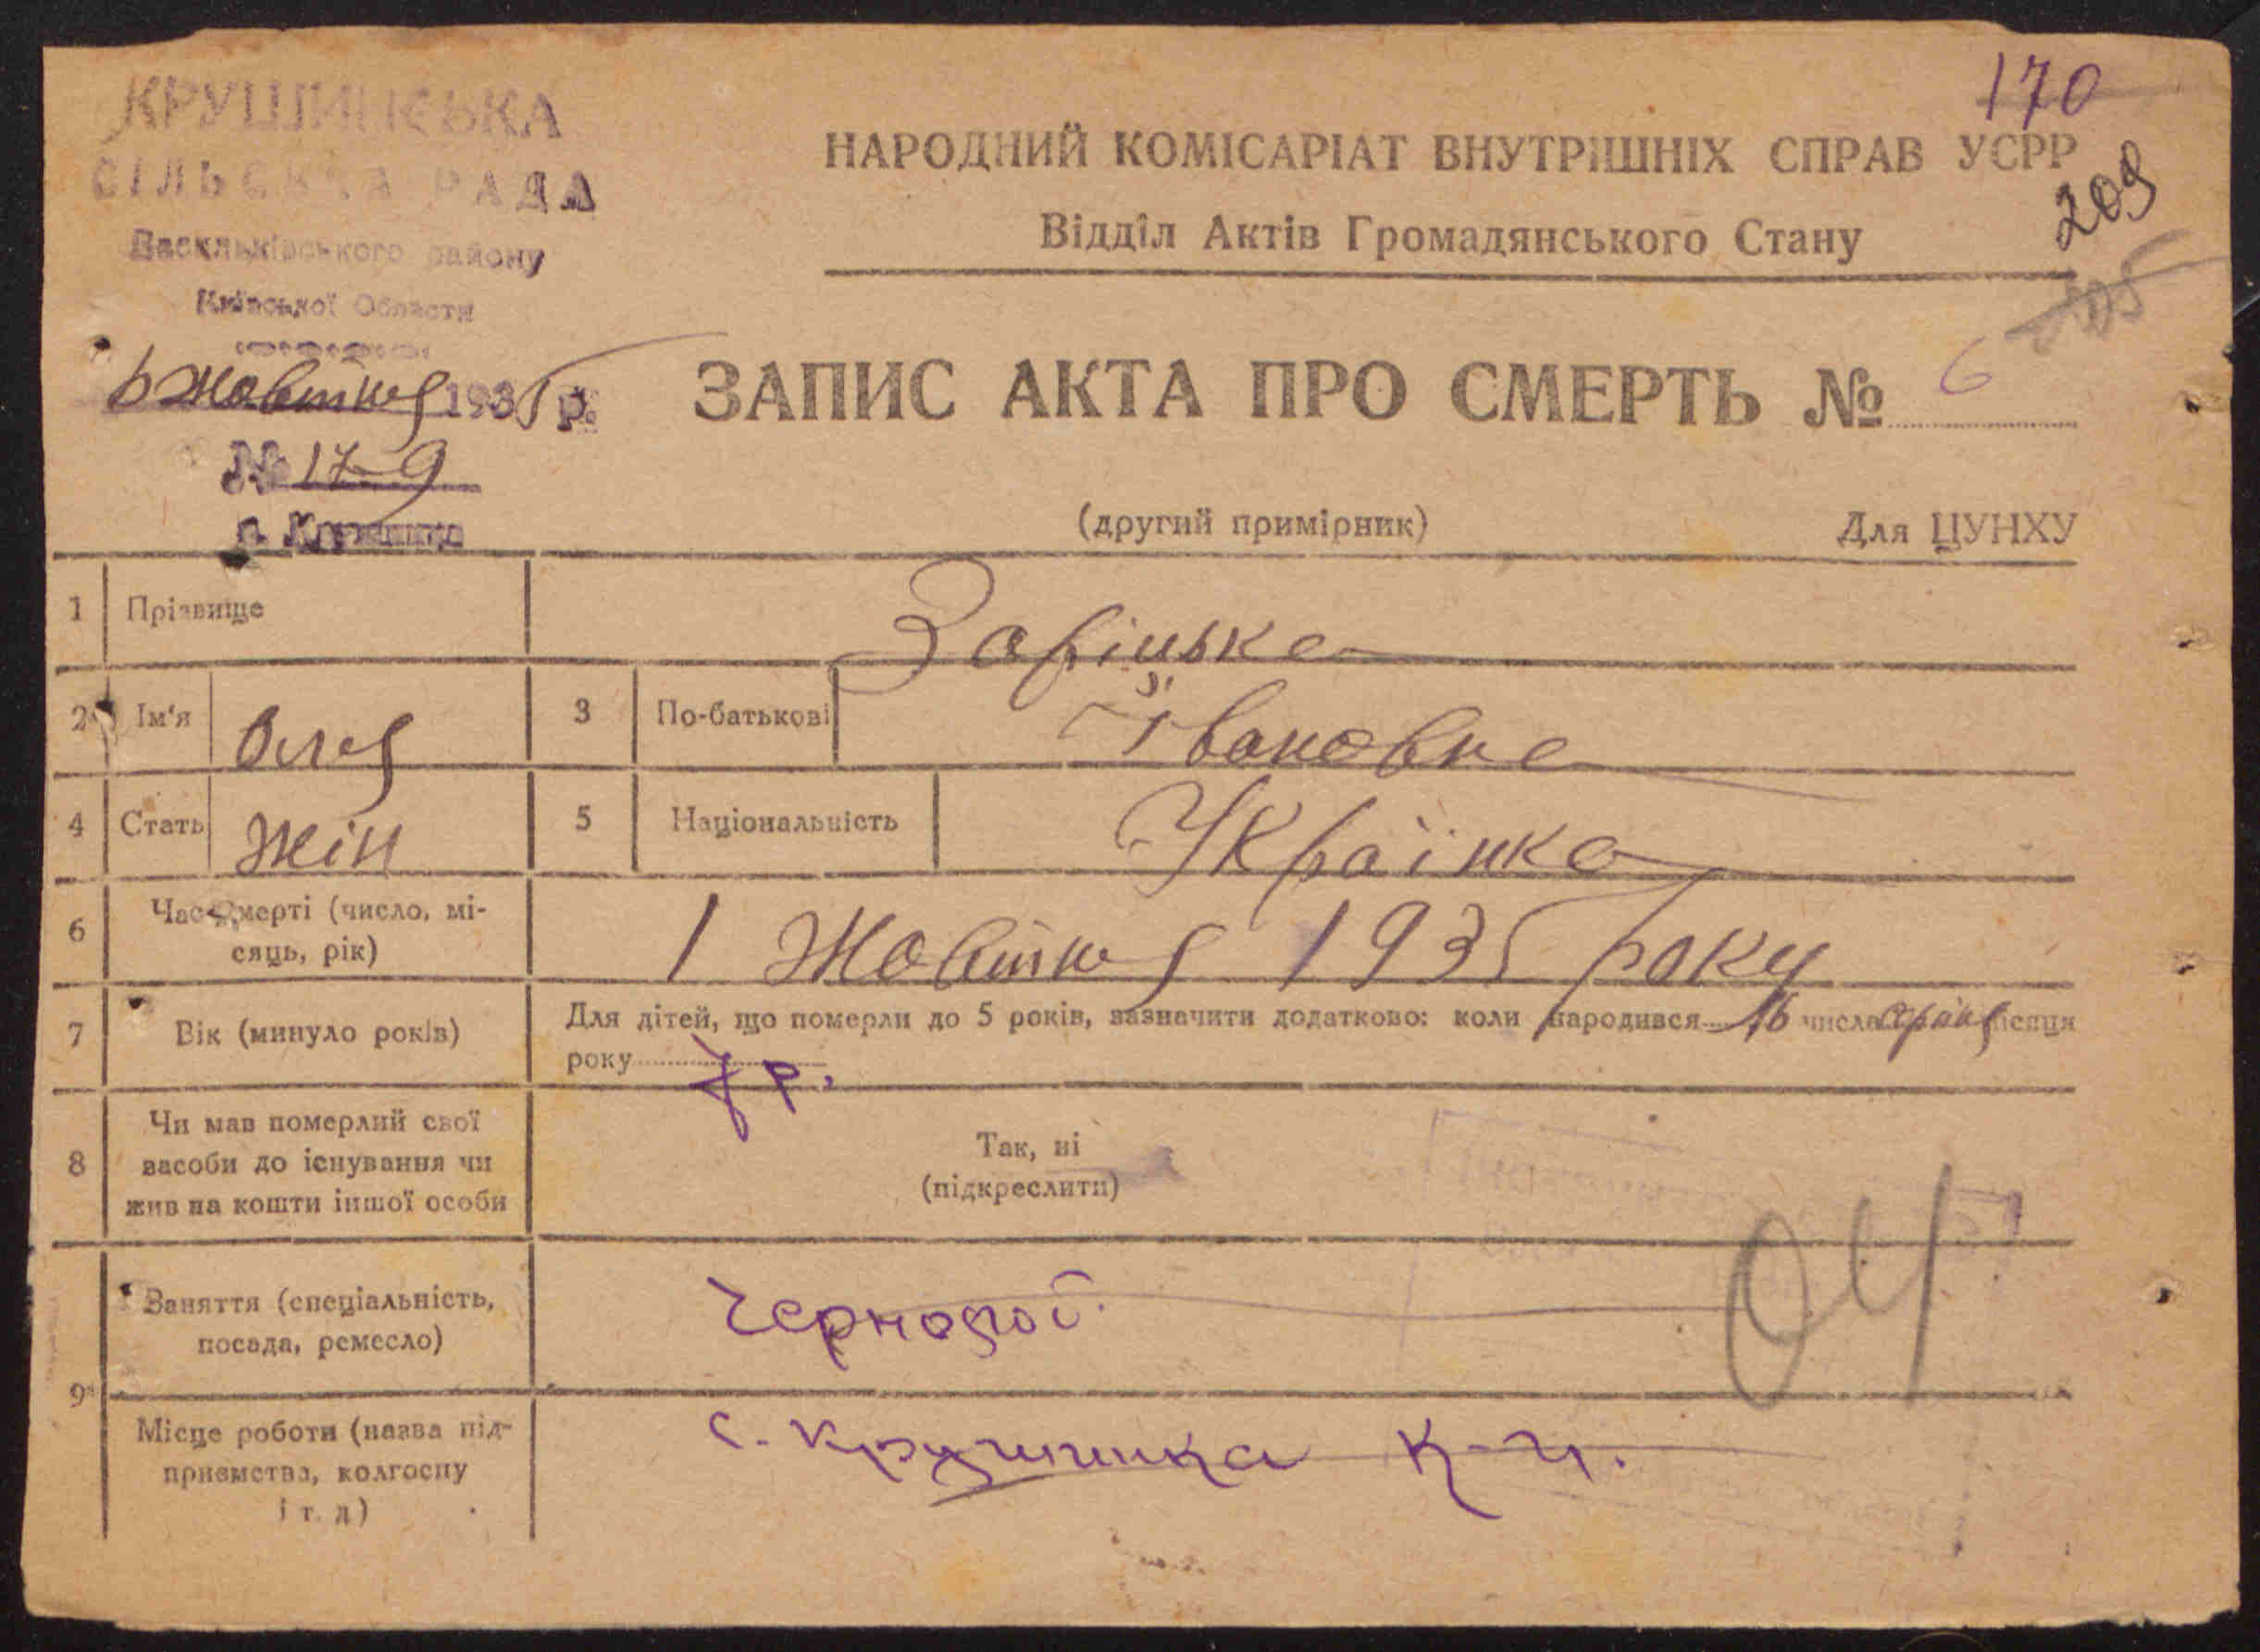 170
КРУШИНСЬКА
СІЛЬСЬКА РАДА
Васильківського району
Київської Области
6 Жовтня 1935 р.
№ 17-9
с. Крушинка
НАРОДНИЙ КОМІСАРІАТ ВНУТРІШНІХ СПРАВ УСРР
209
Відділ Актів Громадянського Стану
ЗАПИС АКТА ПРО СМЕРТЬ № 6
(другий примірник)
Для ЦУНХУ
1 Прізвище Заріцька
2 Ім'я Оля 3 По-батькові Івановна
4 Стать жін 5 Національність Українка
6 Час смерті (число, мі-
сяць, рік) 1 Жовтня 1935 року
7 Вік (минуло років) Для дітей, що померли до 5 років, зазначити додатково: коли народився 16 числа місяця
року 7 р.
8 Чи мав померлий свої
засоби до існування чи
жив на кошти іншої особи
Так, ні
(підкреслити)
9 Заняття (спеціальність,
посада, ремесло)
Місце роботи (назва під-
приємства, колгоспу
і т. д)
с. Крушинка